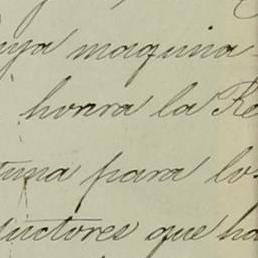 uya maquina-
honra la Re
tuna para los
ductores que ha